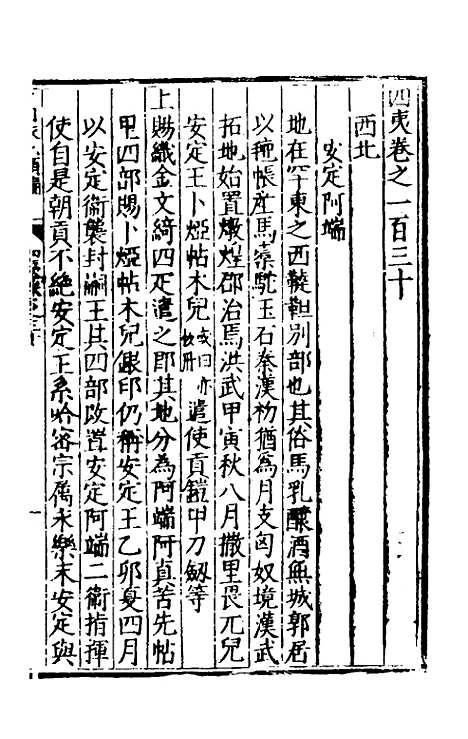 四夷卷之一百三十
西北
安定阿端
地在罕東之西韃靼别部也其俗馬乳釀酒無城郭居
以氊帳產馬橐駝玉石秦漢初猶爲月支匈奴境漢武
拓地始置燉煌郡治焉洪武甲寅秋八月撒里畏兀兒
安定王卜煙帖木兒
遣使貢鎧甲刀劔等
上賜織金文綺四疋遣之即其地分為阿端阿真苦先帖
甲四部賜卜煙帖木兒銀印仍稱安定王乙卯夏四月
以安定衞襲封嗣王其四部改置安定阿端二衞指揮
使自是朝貢不絶安定王系哈密宗属永樂末安定與